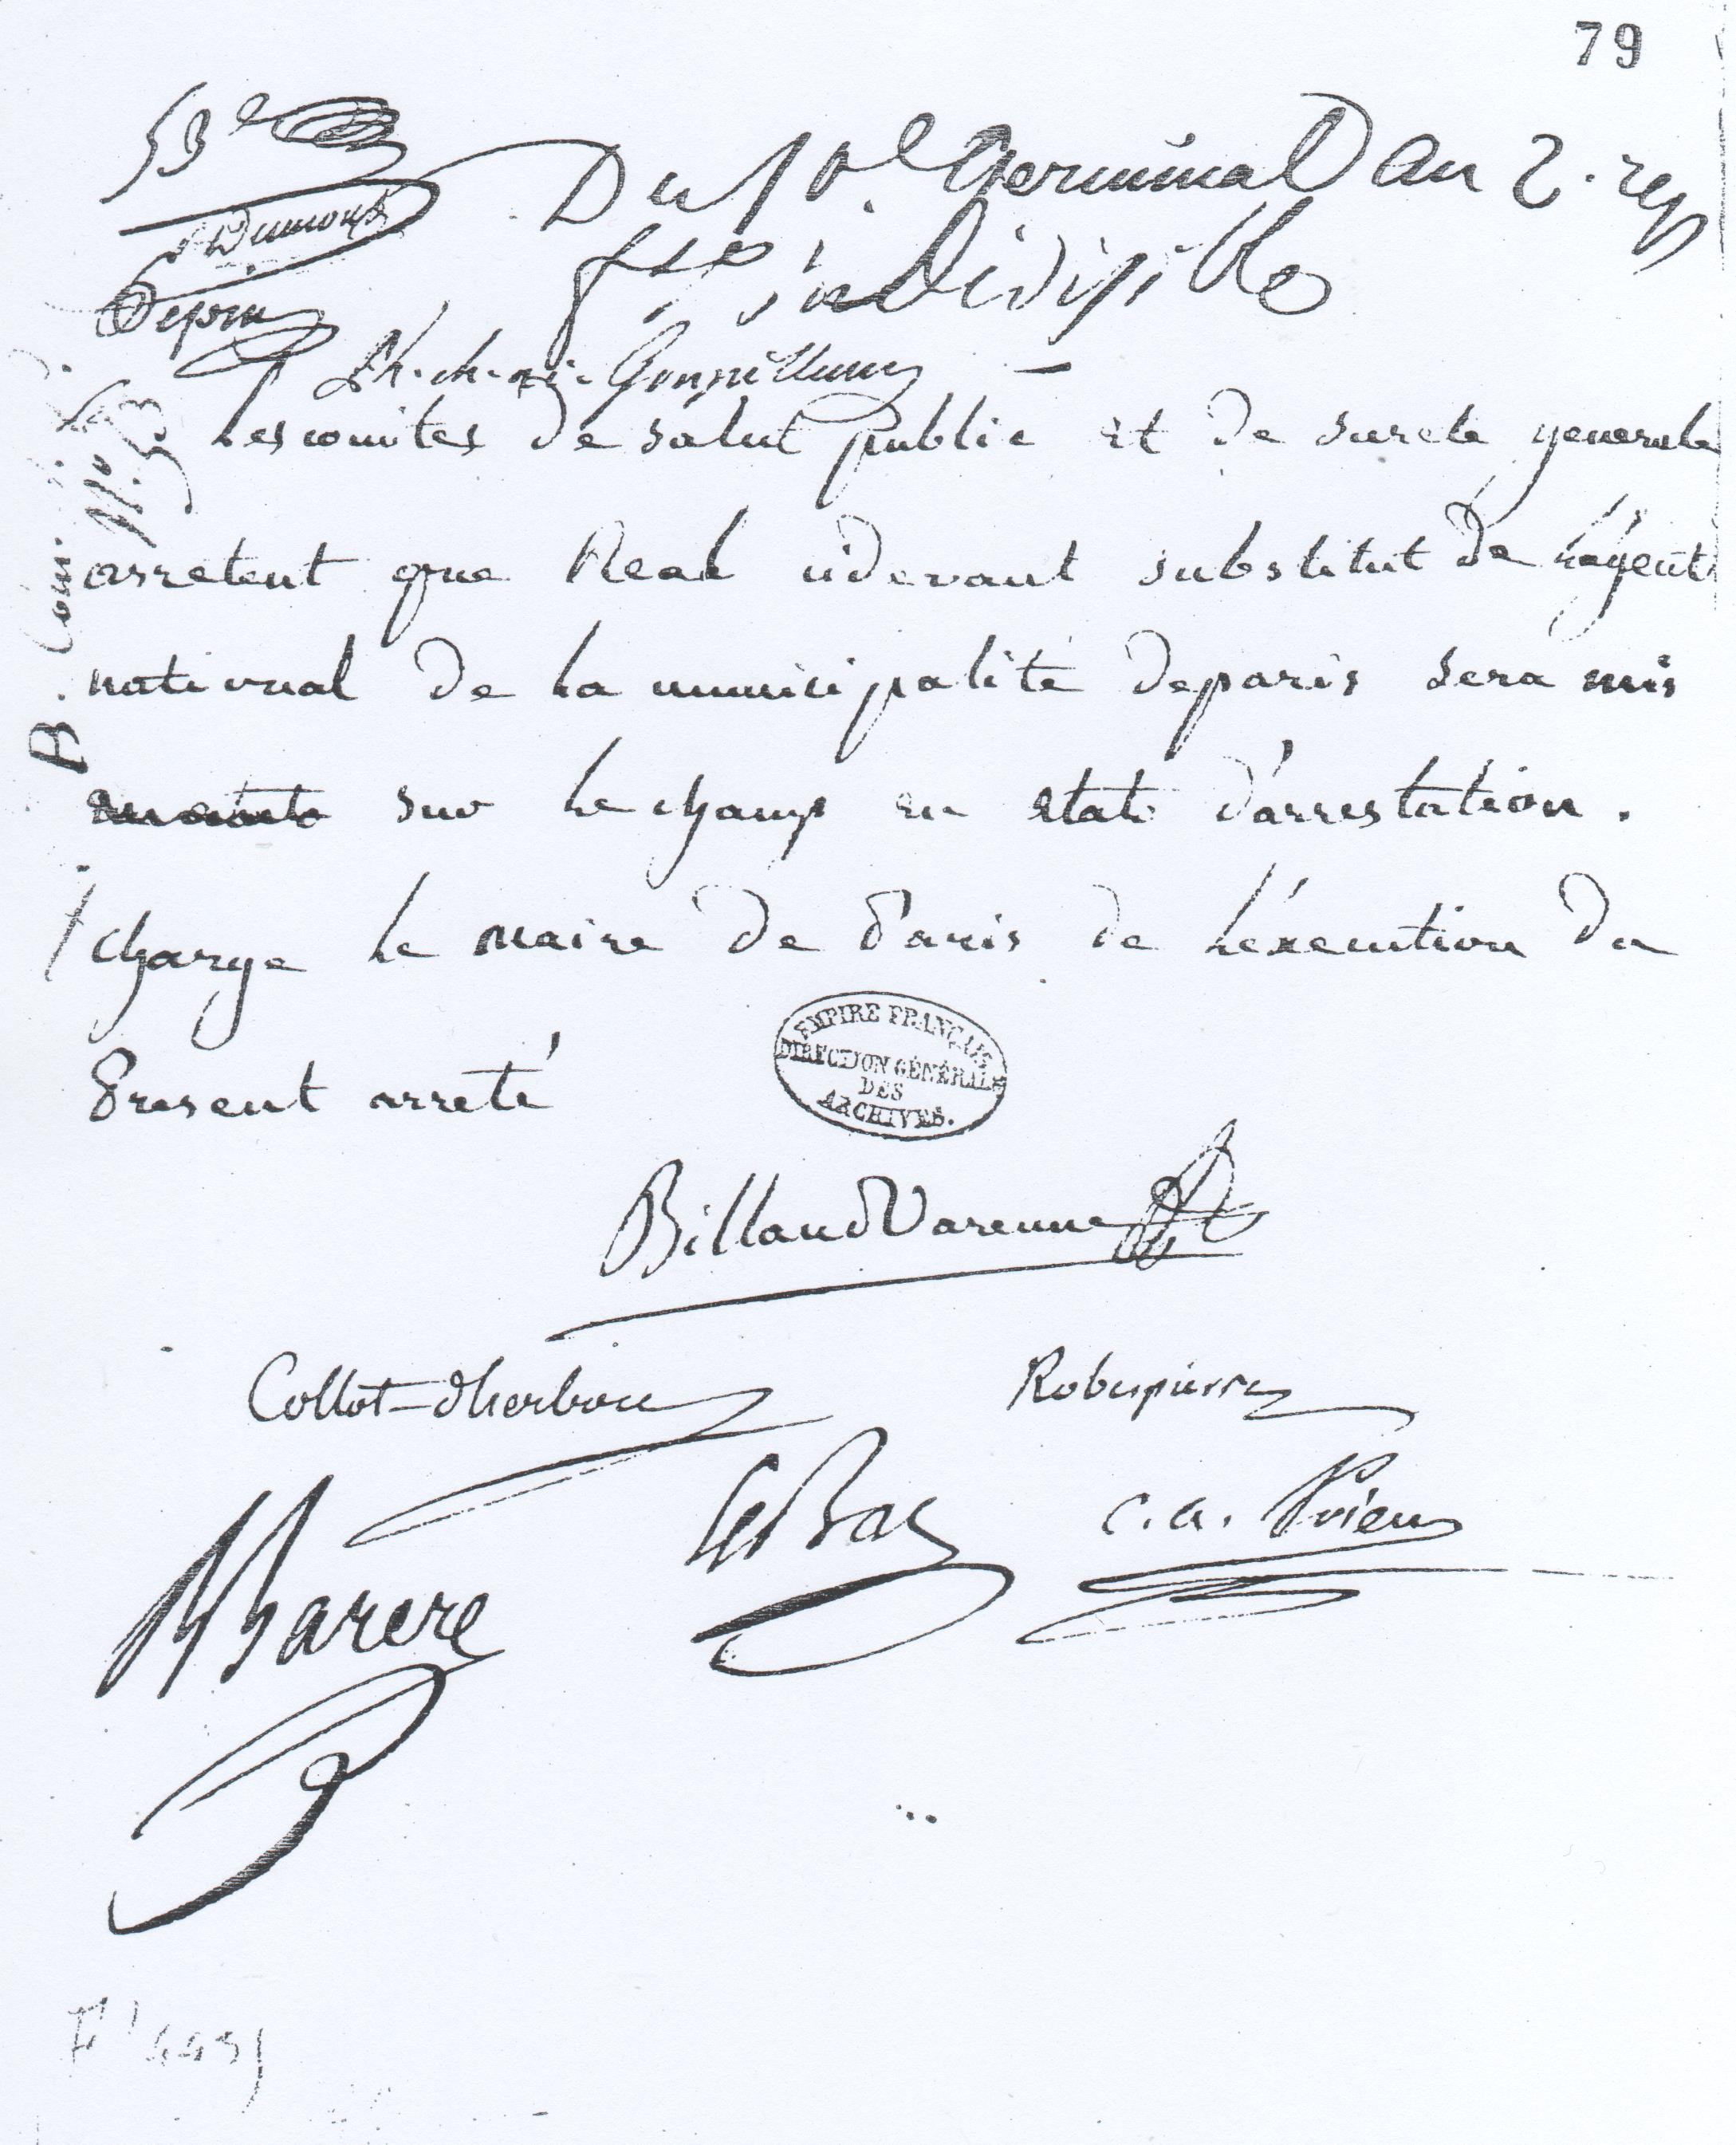 79
53e
Du 10e Germinal an 2. rep
fse indivisible
Dumont
Lescomites de salut public et de surete generale
arretent que Real cidevant substitut de l'agent
national de la municipalité deparis sera mis
sur le champ en etat d'arrestation.
charge le maire de Paris de l'éxecution du
Present arreté
EMPIRE FRANÇAIS
DIRECTION GÉNÉRALE
DES
ARCHIVES.
BillaudVarenne
Collot-dherbois
Robespierre
BBarere
LeBas
c. a. Prieur
B.
N° 53